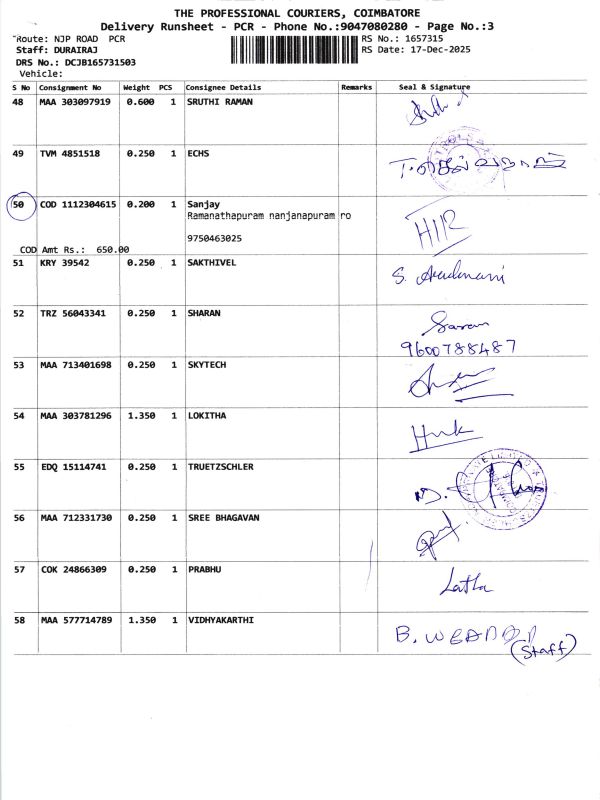 THE PROFESSIONAL COURIERS, COIMBATORE
Delivery Runsheet - PCR - Phone No.:9047080280 - Page No.:3
Route: NJP ROAD PCR
RS No.: 1657315
Staff: DURAIRAJ
RS Date: 17-Dec-2025
DRS No.: DCJB165731503
Vehicle:
S No Consignment No Weight PCS Consignee Details Remarks Seal & Signature
48 MAA 303097919 0.600 1 SRUTHI RAMAN
49 TVM 4851518 0.250 1 ECHS
50 COD 1112304615 0.200 1 Sanjay
Ramanathapuram nanjanapuram ro
9750463025
COD Amt Rs.: 650.00
51 KRY 39542 0.250 1 SAKTHIVEL S.
52 TRZ 56043341 0.250 1 SHARAN Saran
9600788487
53 MAA 713401698 0.250 1 SKYTECH
54 MAA 303781296 1.350 1 LOKITHA
55 EDQ 15114741 0.250 1 TRUETZSCHLER
56 MAA 712331730 0.250 1 SREE BHAGAVAN
57 COK 24866309 0.250 1 PRABHU Latha
58 MAA 577714789 1.350 1 VIDHYAKARTHI B.
(Staff)